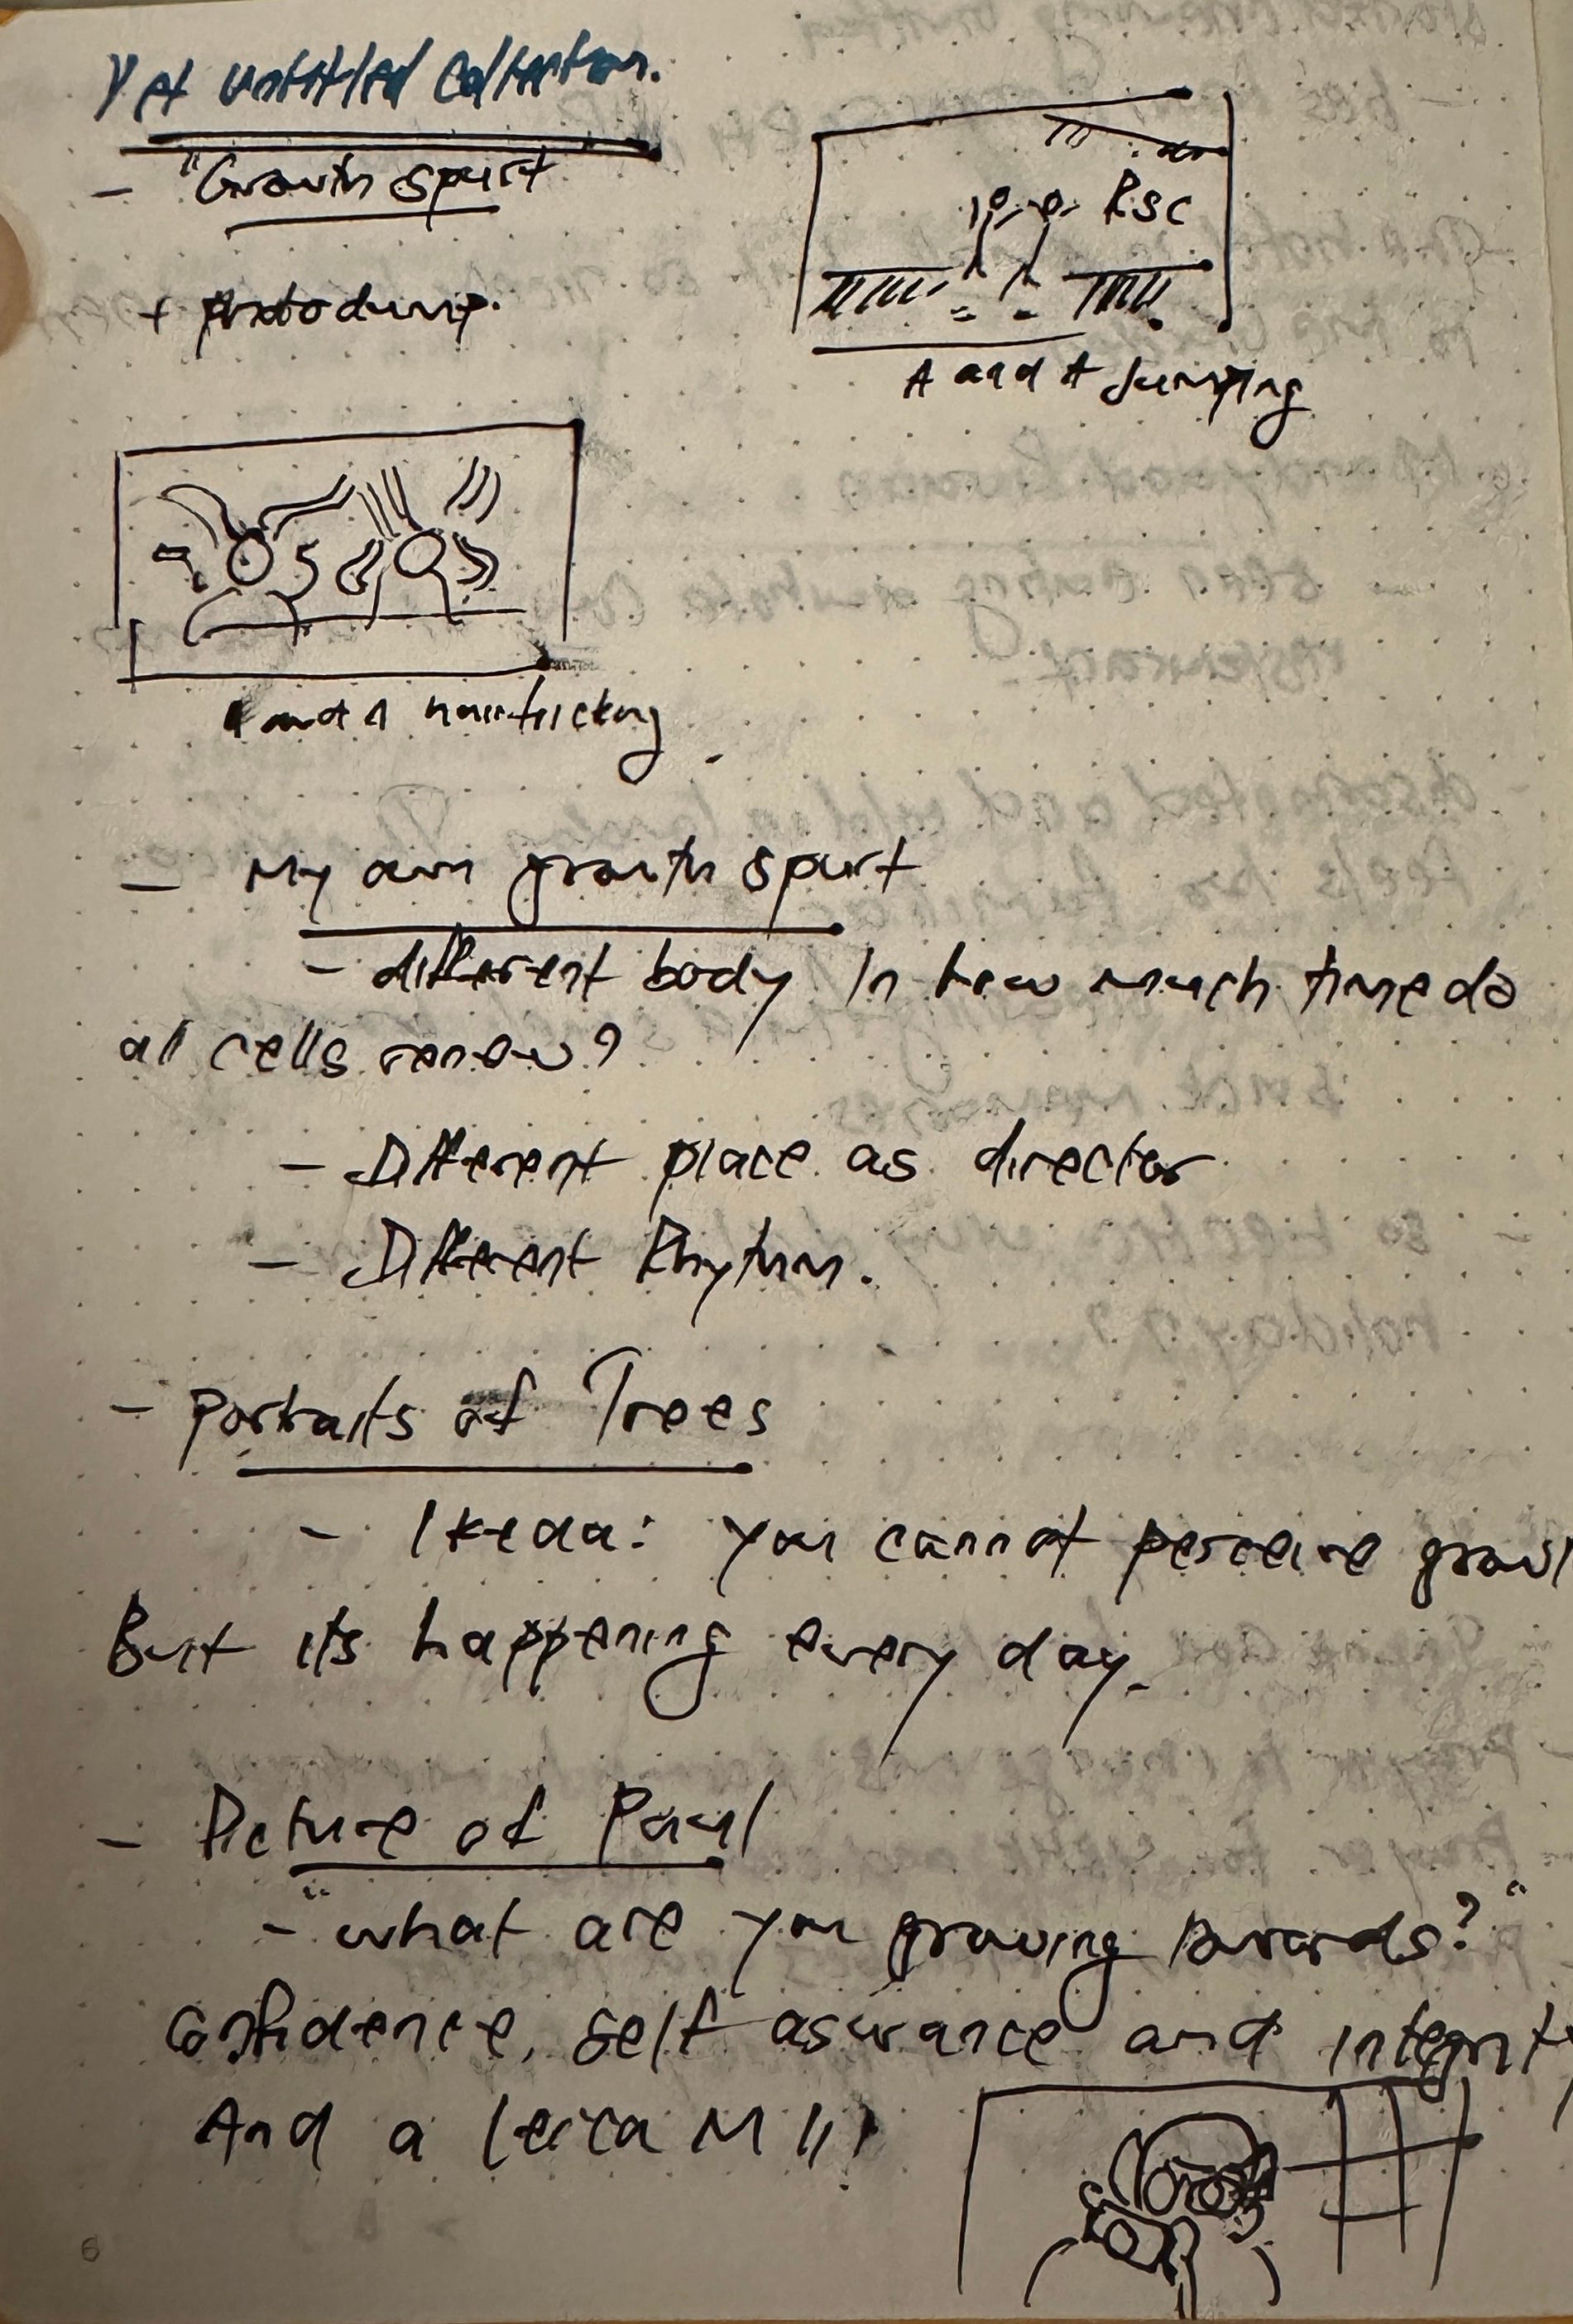 Yet untitled collection.
- "Growth spurt"
+ photodump.
RSC
A and A Jumping
A and A hairflicking
- My own growth spurt
- different body In how much time do
all cells renew?
- Different place as director
- Different Rhythm.
- Portraits of Trees
- Ikeda: you cannot perceive growth
But its happening every day.
- Picture of Paul
- "what are you growing towards?"
Confidence, self assurance and integrity
And a Leica M11
6